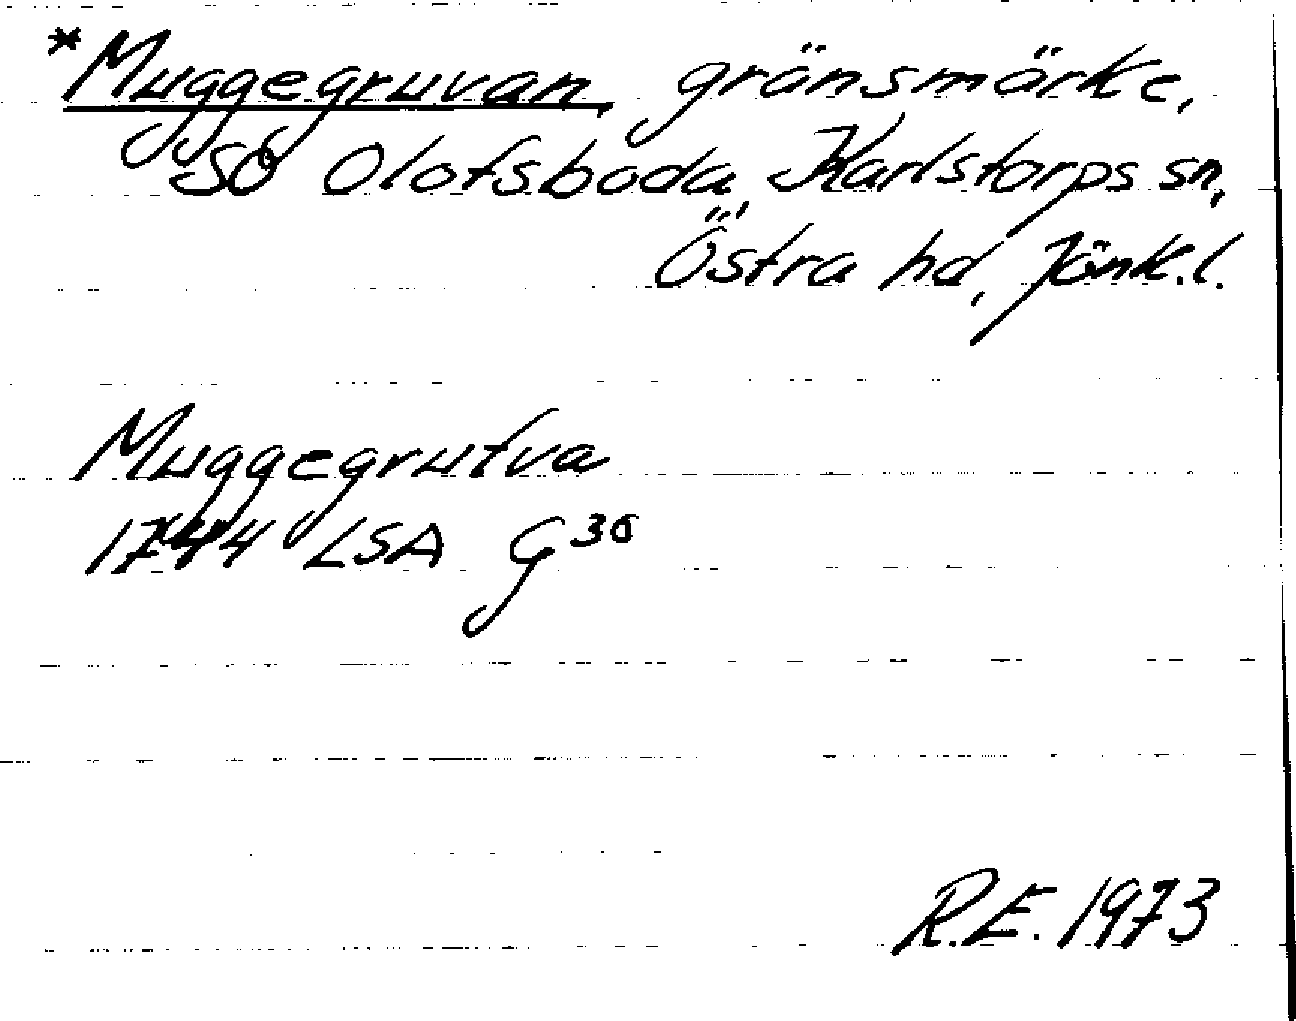 *Muggegruvan, gränsmärke,
SÖ Olofsboda, Karlstorps sn,
Östra hd, Jönk.l.
Muggegrufva
1744 LSA G36
R.E. 1973